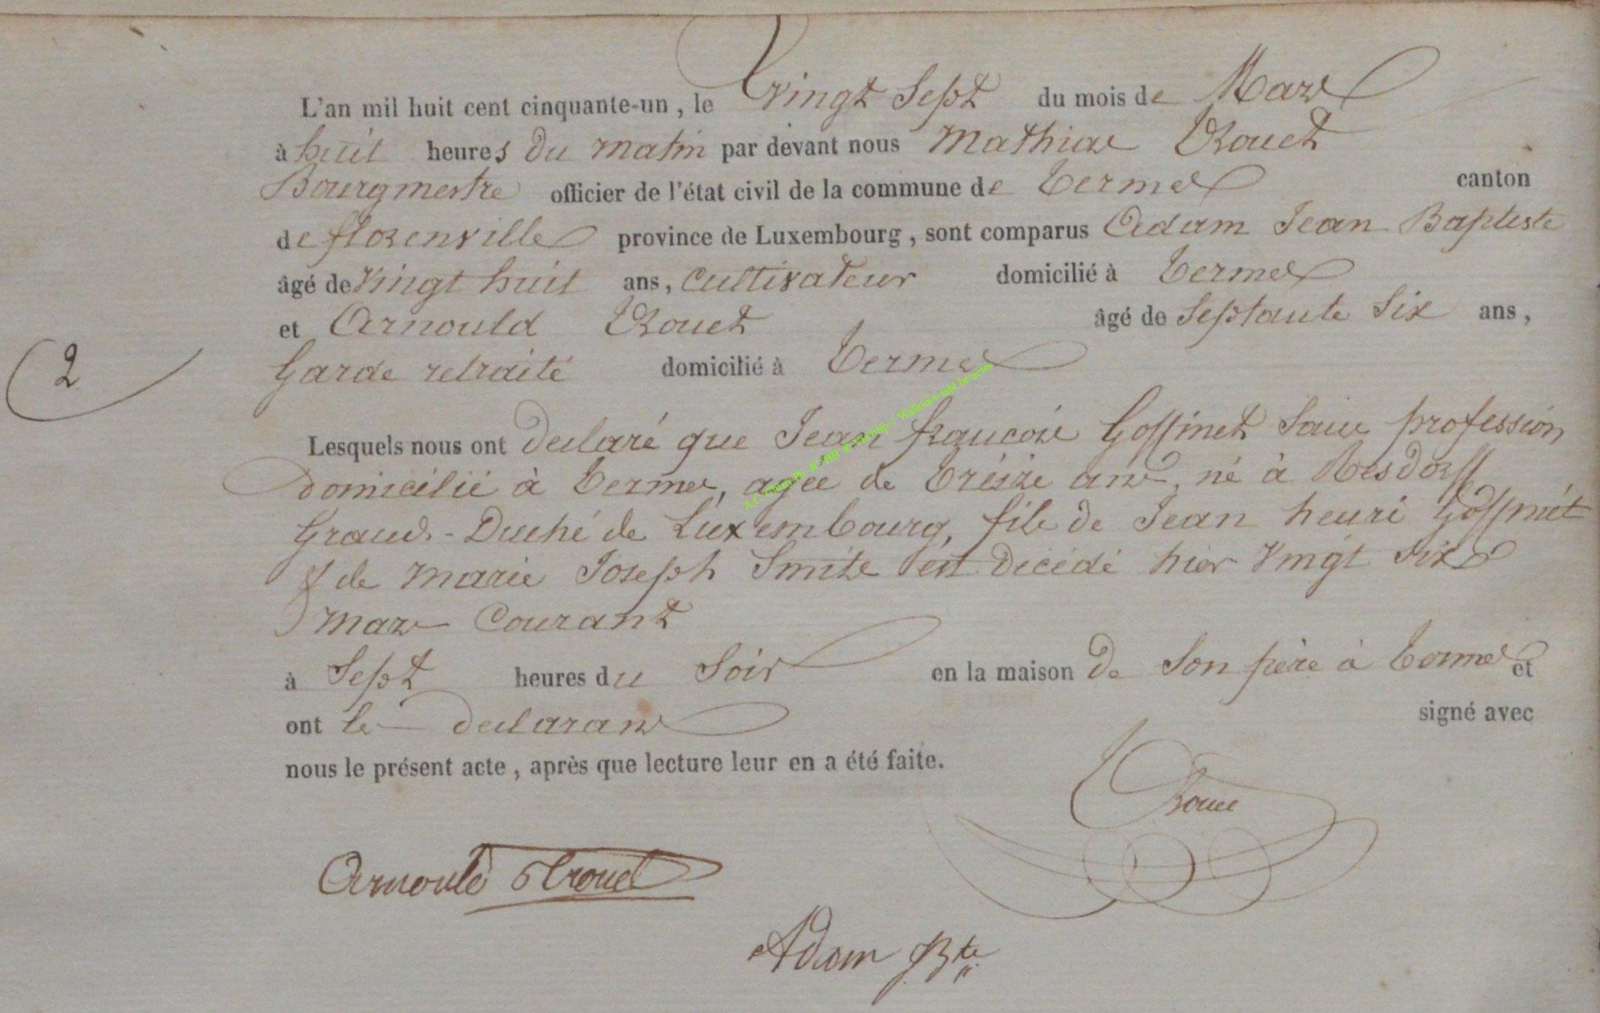 L'an mil huit cent cinquante-un, le vingt Sept du mois de Mars
à huit heures du matin par devant nous Mathias Rouet
Bourgmestre officier de l'état civil de la commune de Termes canton
de florenville province de Luxembourg, sont comparus Adam Jean Baptiste
âgé de vingt huit ans, cultivateur domicilié à Termes
et Arnould Rouet âgé de Septante Six ans,
2
Garde retraité domicilié à Termes
Lesquels nous ont déclaré que Jean françois Goffinet Sans profession
domicilié à Termes, agée de Treize ans, né à
Grand-Duché de Luxembourg, fils de Jean henri Goffinet
& de marie Joseph Smits est décédé hier vingt six
mars Courant
à Sept heures du Soir en la maison de Son père à Termes et
ont les declarans signé avec
nous le présent acte, après que lecture leur en a été faite.
Arnould
Adam Bte